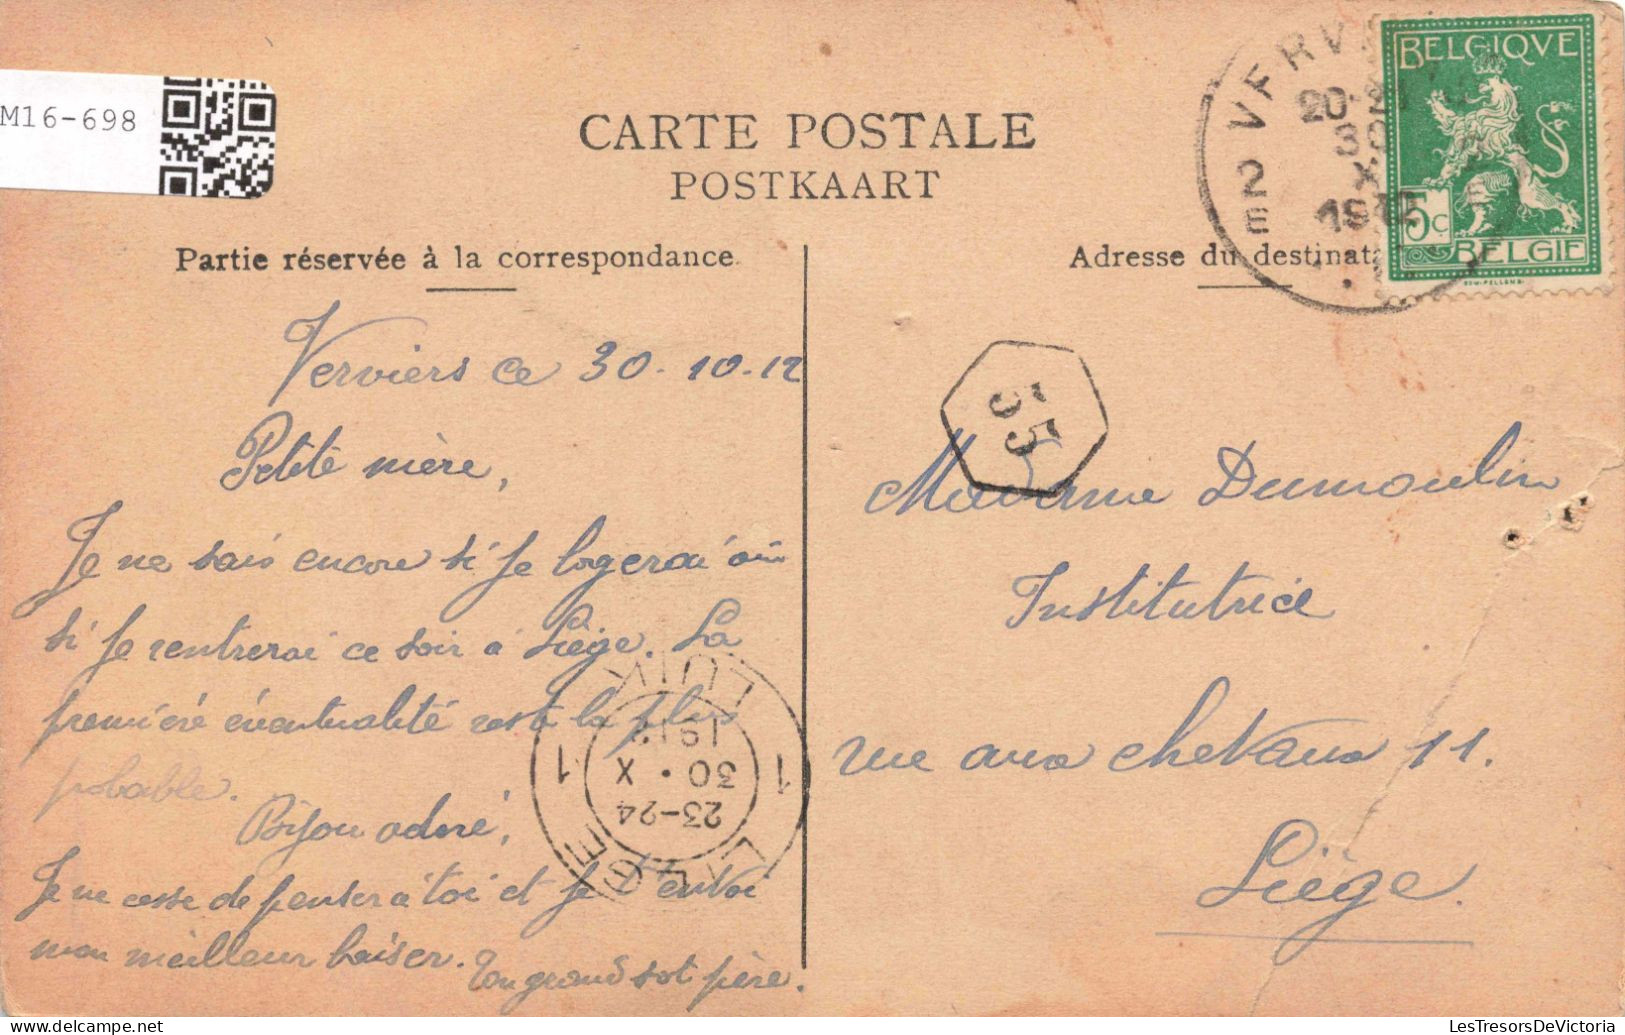 M16-698
CARTE POSTALE
POSTKAART
Partie réservée à la correspondance
Adresse du destinat
BELGIQVE
5c
BELGIE
VERV
20-21
30
X
1912
2
E
Verviers ce 30.10.12
Petite mère,
Je ne sais encore si je logerai ou
si je rentrerai ce soir à Liège. La
première éventualité reste la plus
probable.
Bijou adoré,
Je ne cesse de penser à toi et je t'envoi
mon meilleur baiser. Ton grand sot père.
LIEGE
23-24
30.X
1912
1 1
LUIK
55
Madame Dumoulin
Institutrice
rue aux chevaux 11.
Liège.
www.delcampe.net
LesTresorsDeVictoria